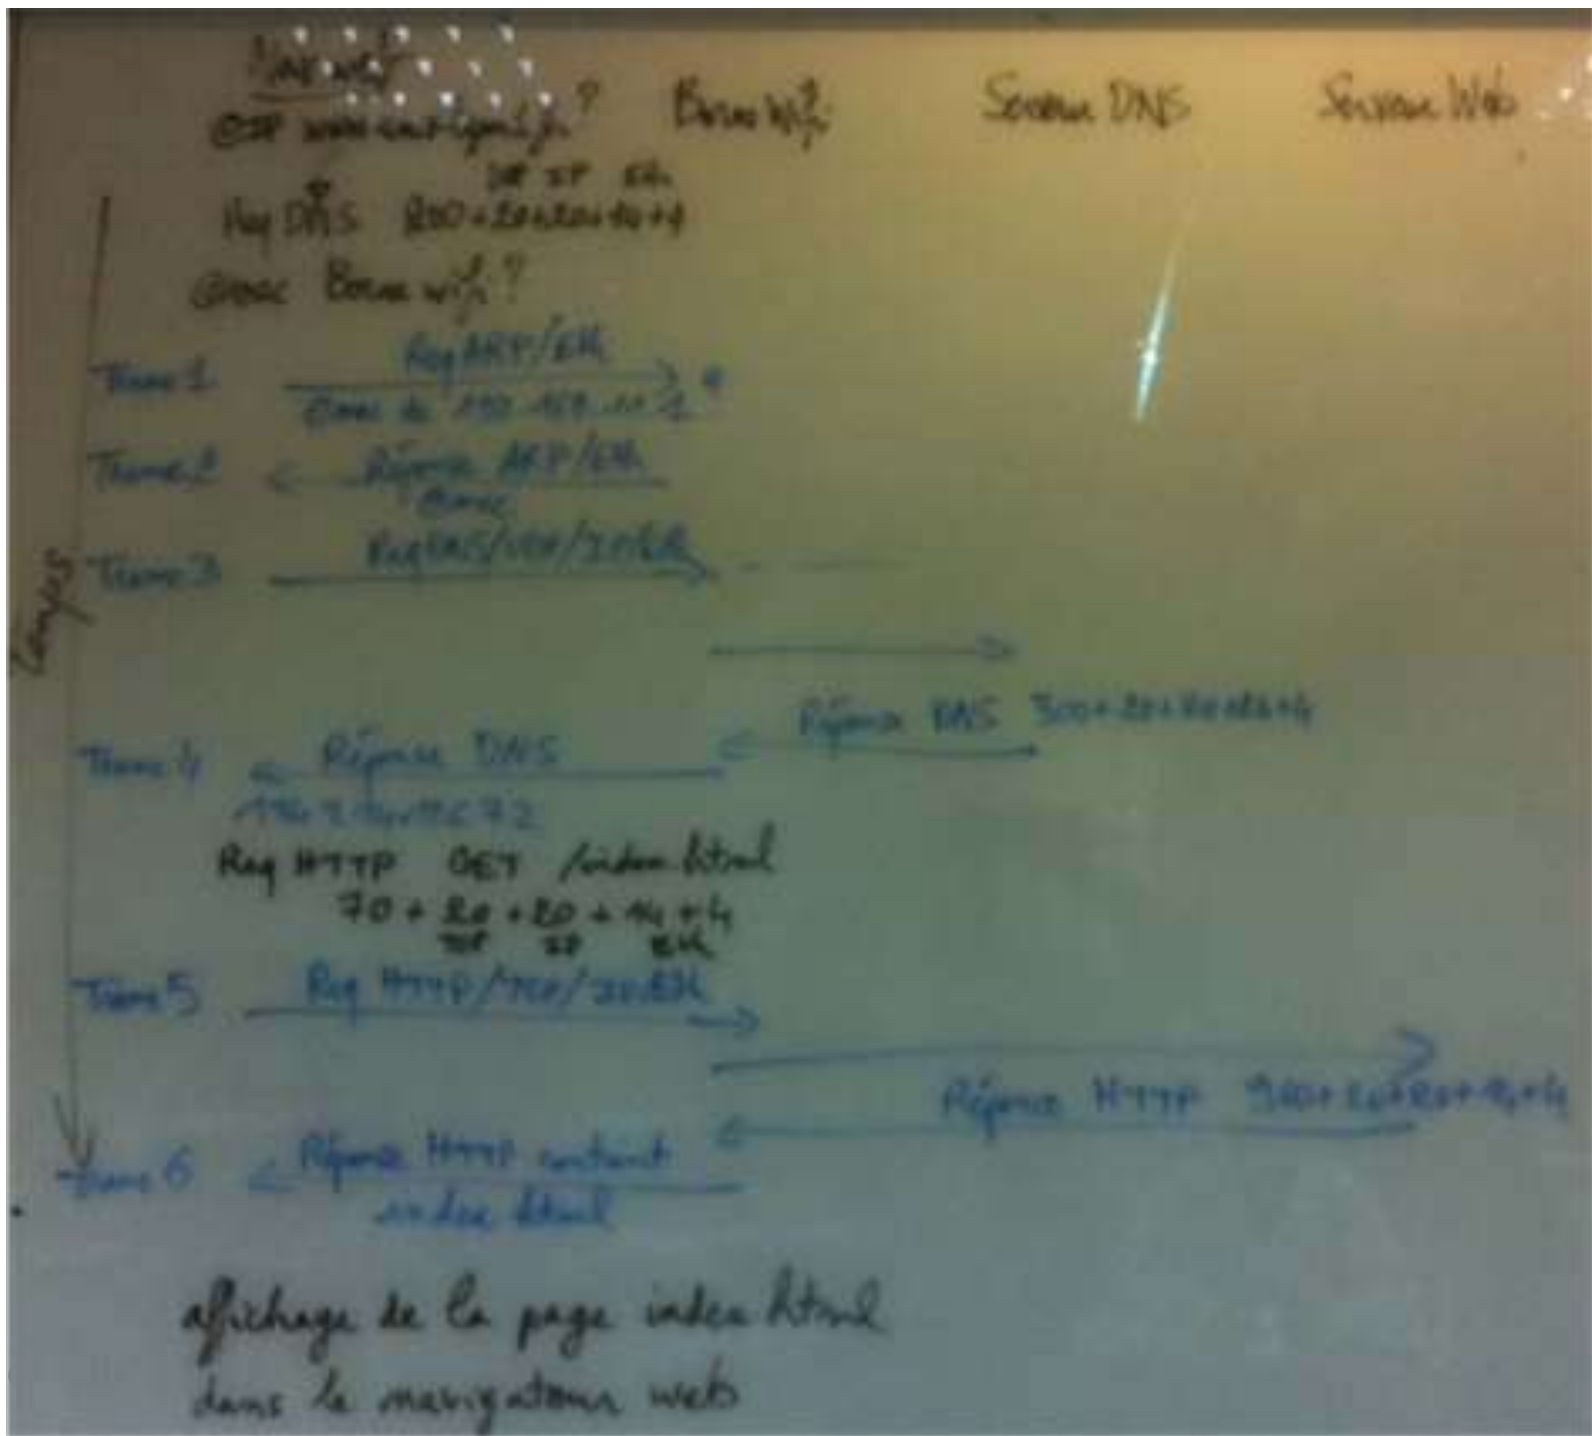 Borne wifi Serveur DNS Serveur Web
@IP ?
IP Eth
Req DNS 200+20+20+14+4
@mac Borne wifi ?
Trame 1 Req ARP/Eth
@mac de 1 ?
Trame 2 Réponse ARP/Eth
@mac
Trame 3 Req DNS/ /IP/Eth
Temps
Réponse DNS 300+20+20+14+4
Trame 4 Réponse DNS
Req HTTP GET /index.html
70 + 20 + 20 + 14 + 4
TCP IP Eth
Trame 5 Req HTTP/TCP/IP/Eth
Réponse HTTP +20+20+14+4
Trame 6 Réponse HTTP contenant
index.html
affichage de la page index.html
dans le navigateur web